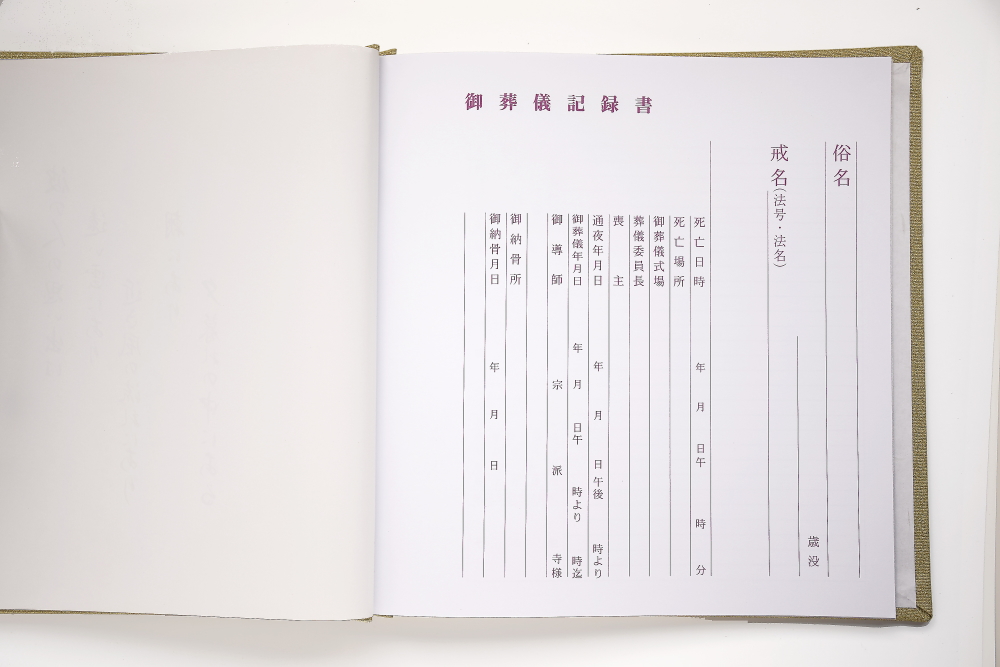 御葬儀記録書
俗名
歳没
戒名(法号・法名)
死亡日時 年 月 日午 時 分
死亡場所
御葬儀式場
葬儀委員長
喪主
通夜年月日 年 月 日午後 時より
御葬儀年月日 年 月 日午 時より 時迄
御導師 宗 派 寺様
御納骨所
御納骨月日 年 月 日